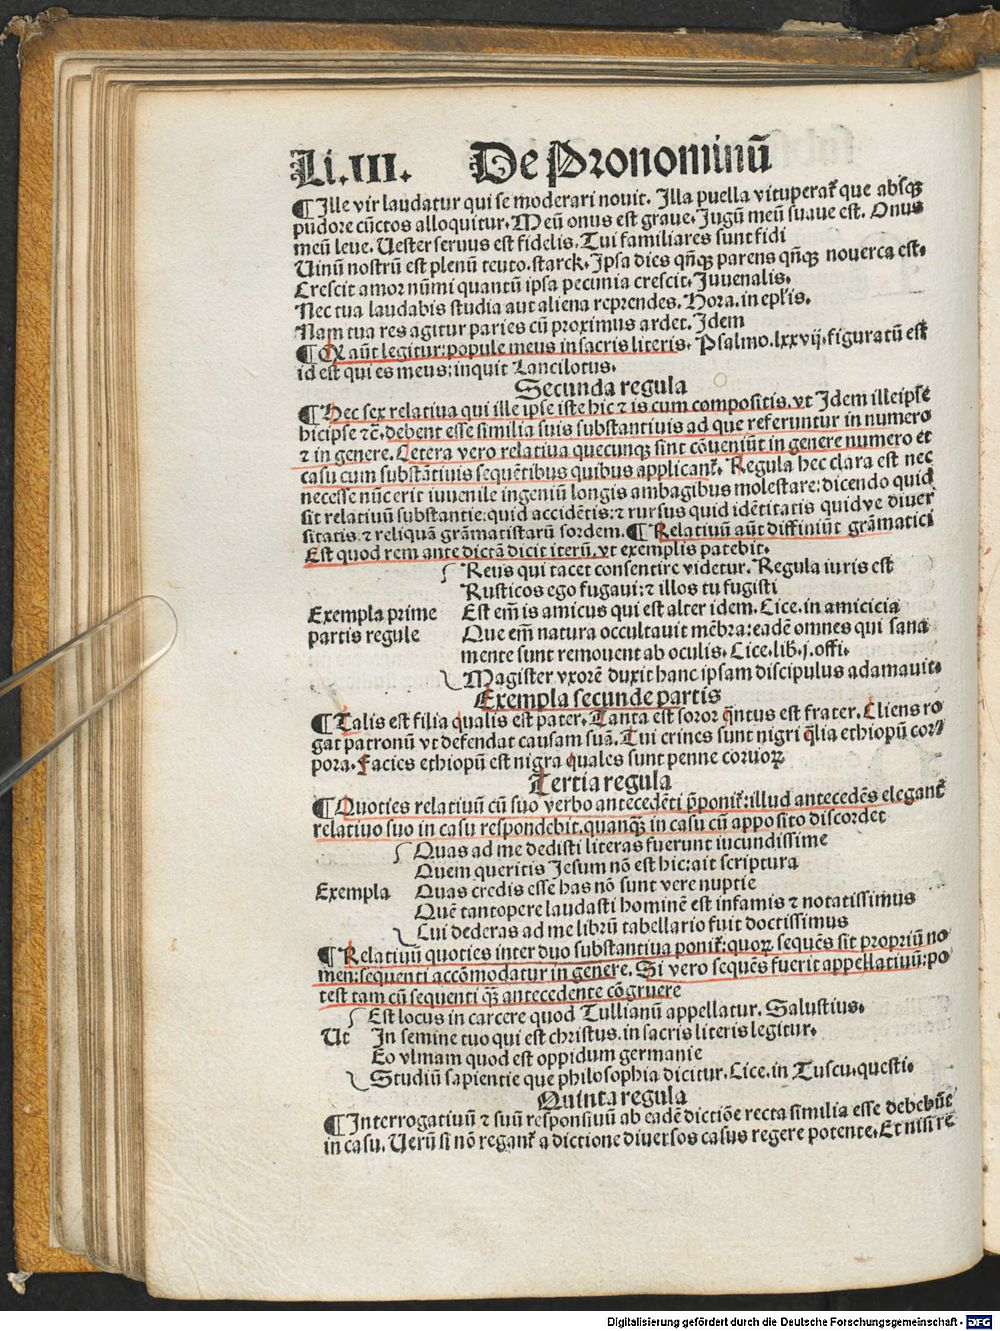 Li.III. De Pronominū
¶Ille vir laudatur qui se moderari nouit. Illa puella vituperat᷑ que absqꝫ
pudore cūctos alloquitur. Meū onus est graue. Jugū meū suaue est. Onus
meū leue. Uester seruus est fidelis. Tui familiares sunt fidi
Uinū nostrū est plenū teuto. starck. Ipsa dies qn̄qꝫ parens qn̄qꝫ nouerca est.
Crescit amor nūmi quantū ipsa pecunia crescit. Juuenalis.
Nec tua laudabis studia aut aliena reprendes. Hora. in epl'is.
Nam tua res agitur paries cū proximus ardet. Idem
¶Qn̄ aūt legitur: popule meus in sacris literis. Psalmo. lxxvij. figuratū est
id est qui es meus: inquit Lancilotus.
Secunda regula
¶Hec sex relatiua qui ille ipse iste hic ⁊ is cum compositis. vt Idem illeipse
hicipse ⁊c̄. debent esse similia suis substantiuis ad que referuntur in numero
⁊ in genere. Cetera vero relatiua quecunqꝫ sint cōueniūt in genere numero et
casu cum substātiuis sequētibus quibus applicant᷑. Regula hec clara est nec
necesse nūc erit iuuenile ingeniū longis ambagibus molestare: dicendo quid
sit relatiuū substantie: quid accidētis: ⁊ rursus quid idētitatis quidve diuer
sitatis ⁊ reliquā grāmatistarū sordem. ¶Relatiuū aūt diffiniūt grāmatici
Est quod rem ante dictā dicit iterū. vt exemplis patebit.
Reus qui tacet consentire videtur. Regula iuris est
Rusticos ego fugaui: ⁊ illos tu fugisti
Exempla prime Est em̄ is amicus qui est alter idem. Cice. in amicicia
partis regule Que em̄ natura occultauit mēbra: eadē omnes qui sana
mente sunt remouent ab oculis. Cice. lib. j. offi.
Magister vxorē duxit hanc ipsam discipulus adamauit.
Exempla secunde partis
¶Talis est filia qualis est pater. Tanta est soror q̄ntus est frater. Cliens ro
gat patronū vt defendat causam suā. Tui crines sunt nigri q̄lia ethiopū cor⸗
pora. Facies ethiopū est nigra quales sunt penne coruoꝝ
Tertia regula
¶Quoties relatiuū cū suo verbo antecedēti p̄ponit᷑: illud antecedēs elegant᷑
relatiuo suo in casu respondebit. quanqꝫ in casu cū apposito discordet
Quas ad me dedisti literas fuerunt iucundissime
Quem queritis Jesum nō est hic: ait scriptura
Exempla Quas credis esse has nō sunt vere nuptie
Quē tantopere laudasti hominē est infamis ⁊ notatissimus
Cui dederas ad me librū tabellario fuit doctissimus
¶Relatiuū quoties inter duo substantiua ponit᷑: quoꝝ sequēs sit propriū no
men: sequenti accōmodatur in genere. Si vero sequēs fuerit appellatiuū: po
test tam cū sequenti qꝫ antecedente cōgruere
Est locus in carcere quod Tullianū appellatur. Salustius.
Ut In semine tuo qui est christus. in sacris literis legitur.
Eo vlmam quod est oppidum germanie
Studiū sapientie que philosophia dicitur. Cice. in Tuscu. questi.
Quinta regula
¶Interrogatiuū ⁊ suū responsiuū ab eadē dictiōe recta similia esse debebūt
in casu. Uerū si nō regant᷑ a dictione diuersos casus regere potente. Et nisi re
Digitalisierung gefördert durch die Deutsche Forschungsgemeinschaft - DFG